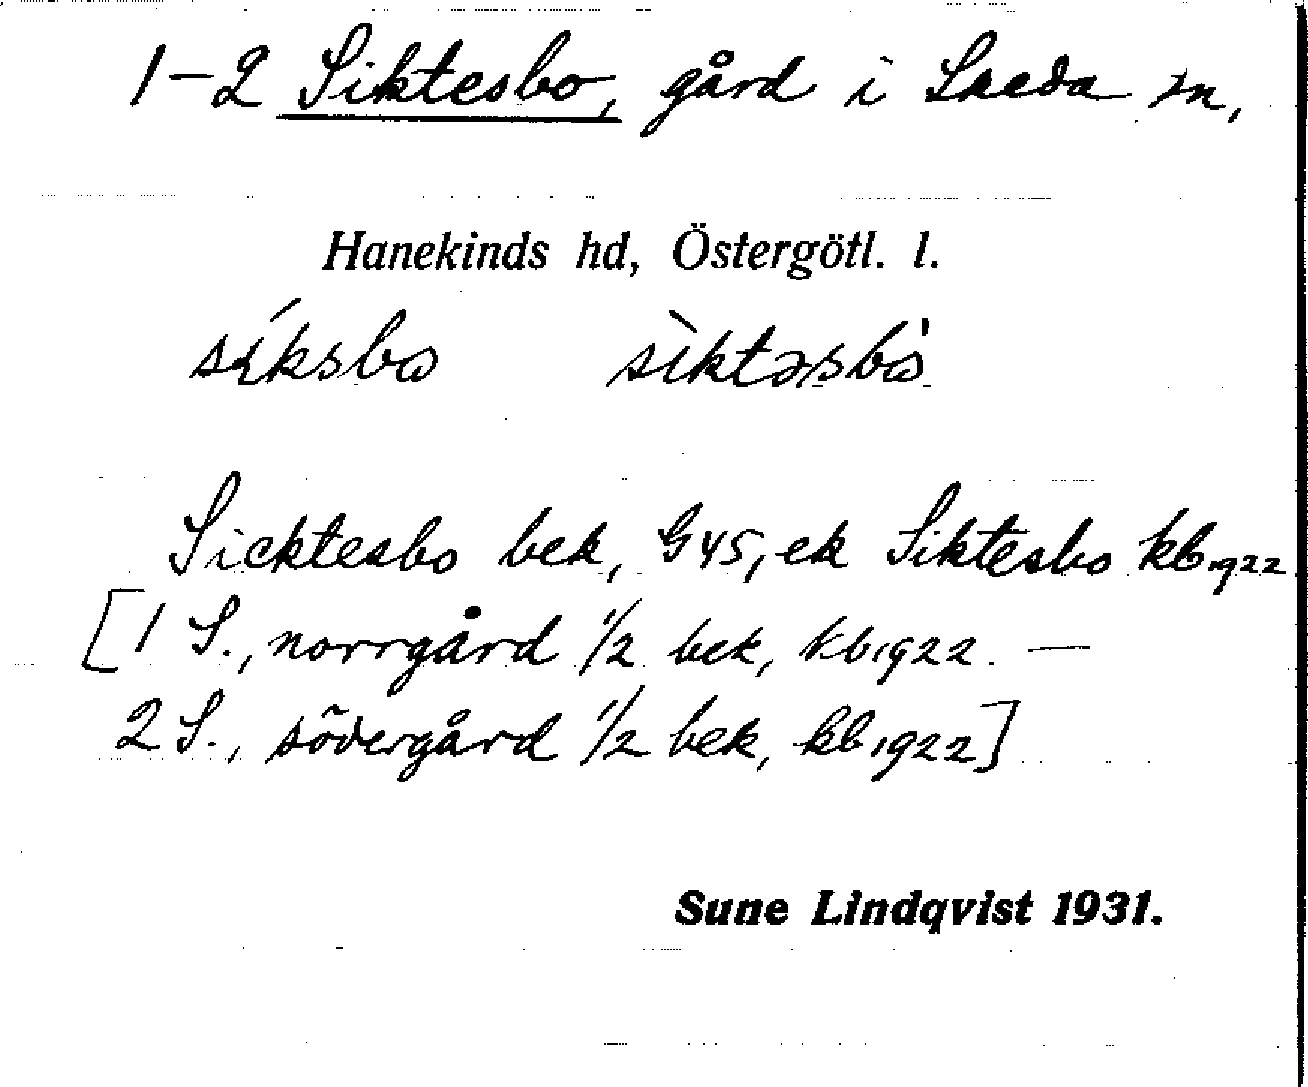 1-2 Siktesbo, gård i Skeda sn,
Hanekinds hd, Östergötl. l.
síksbo sìktəsbò
Sicktesbo bek, G45, ek Siktesbo kb 1922
[1 S., norrgård 1/2 bek, kb 1922. —
2 S., södergård 1/2 bek, kb 1922]
Sune Lindqvist 1931.